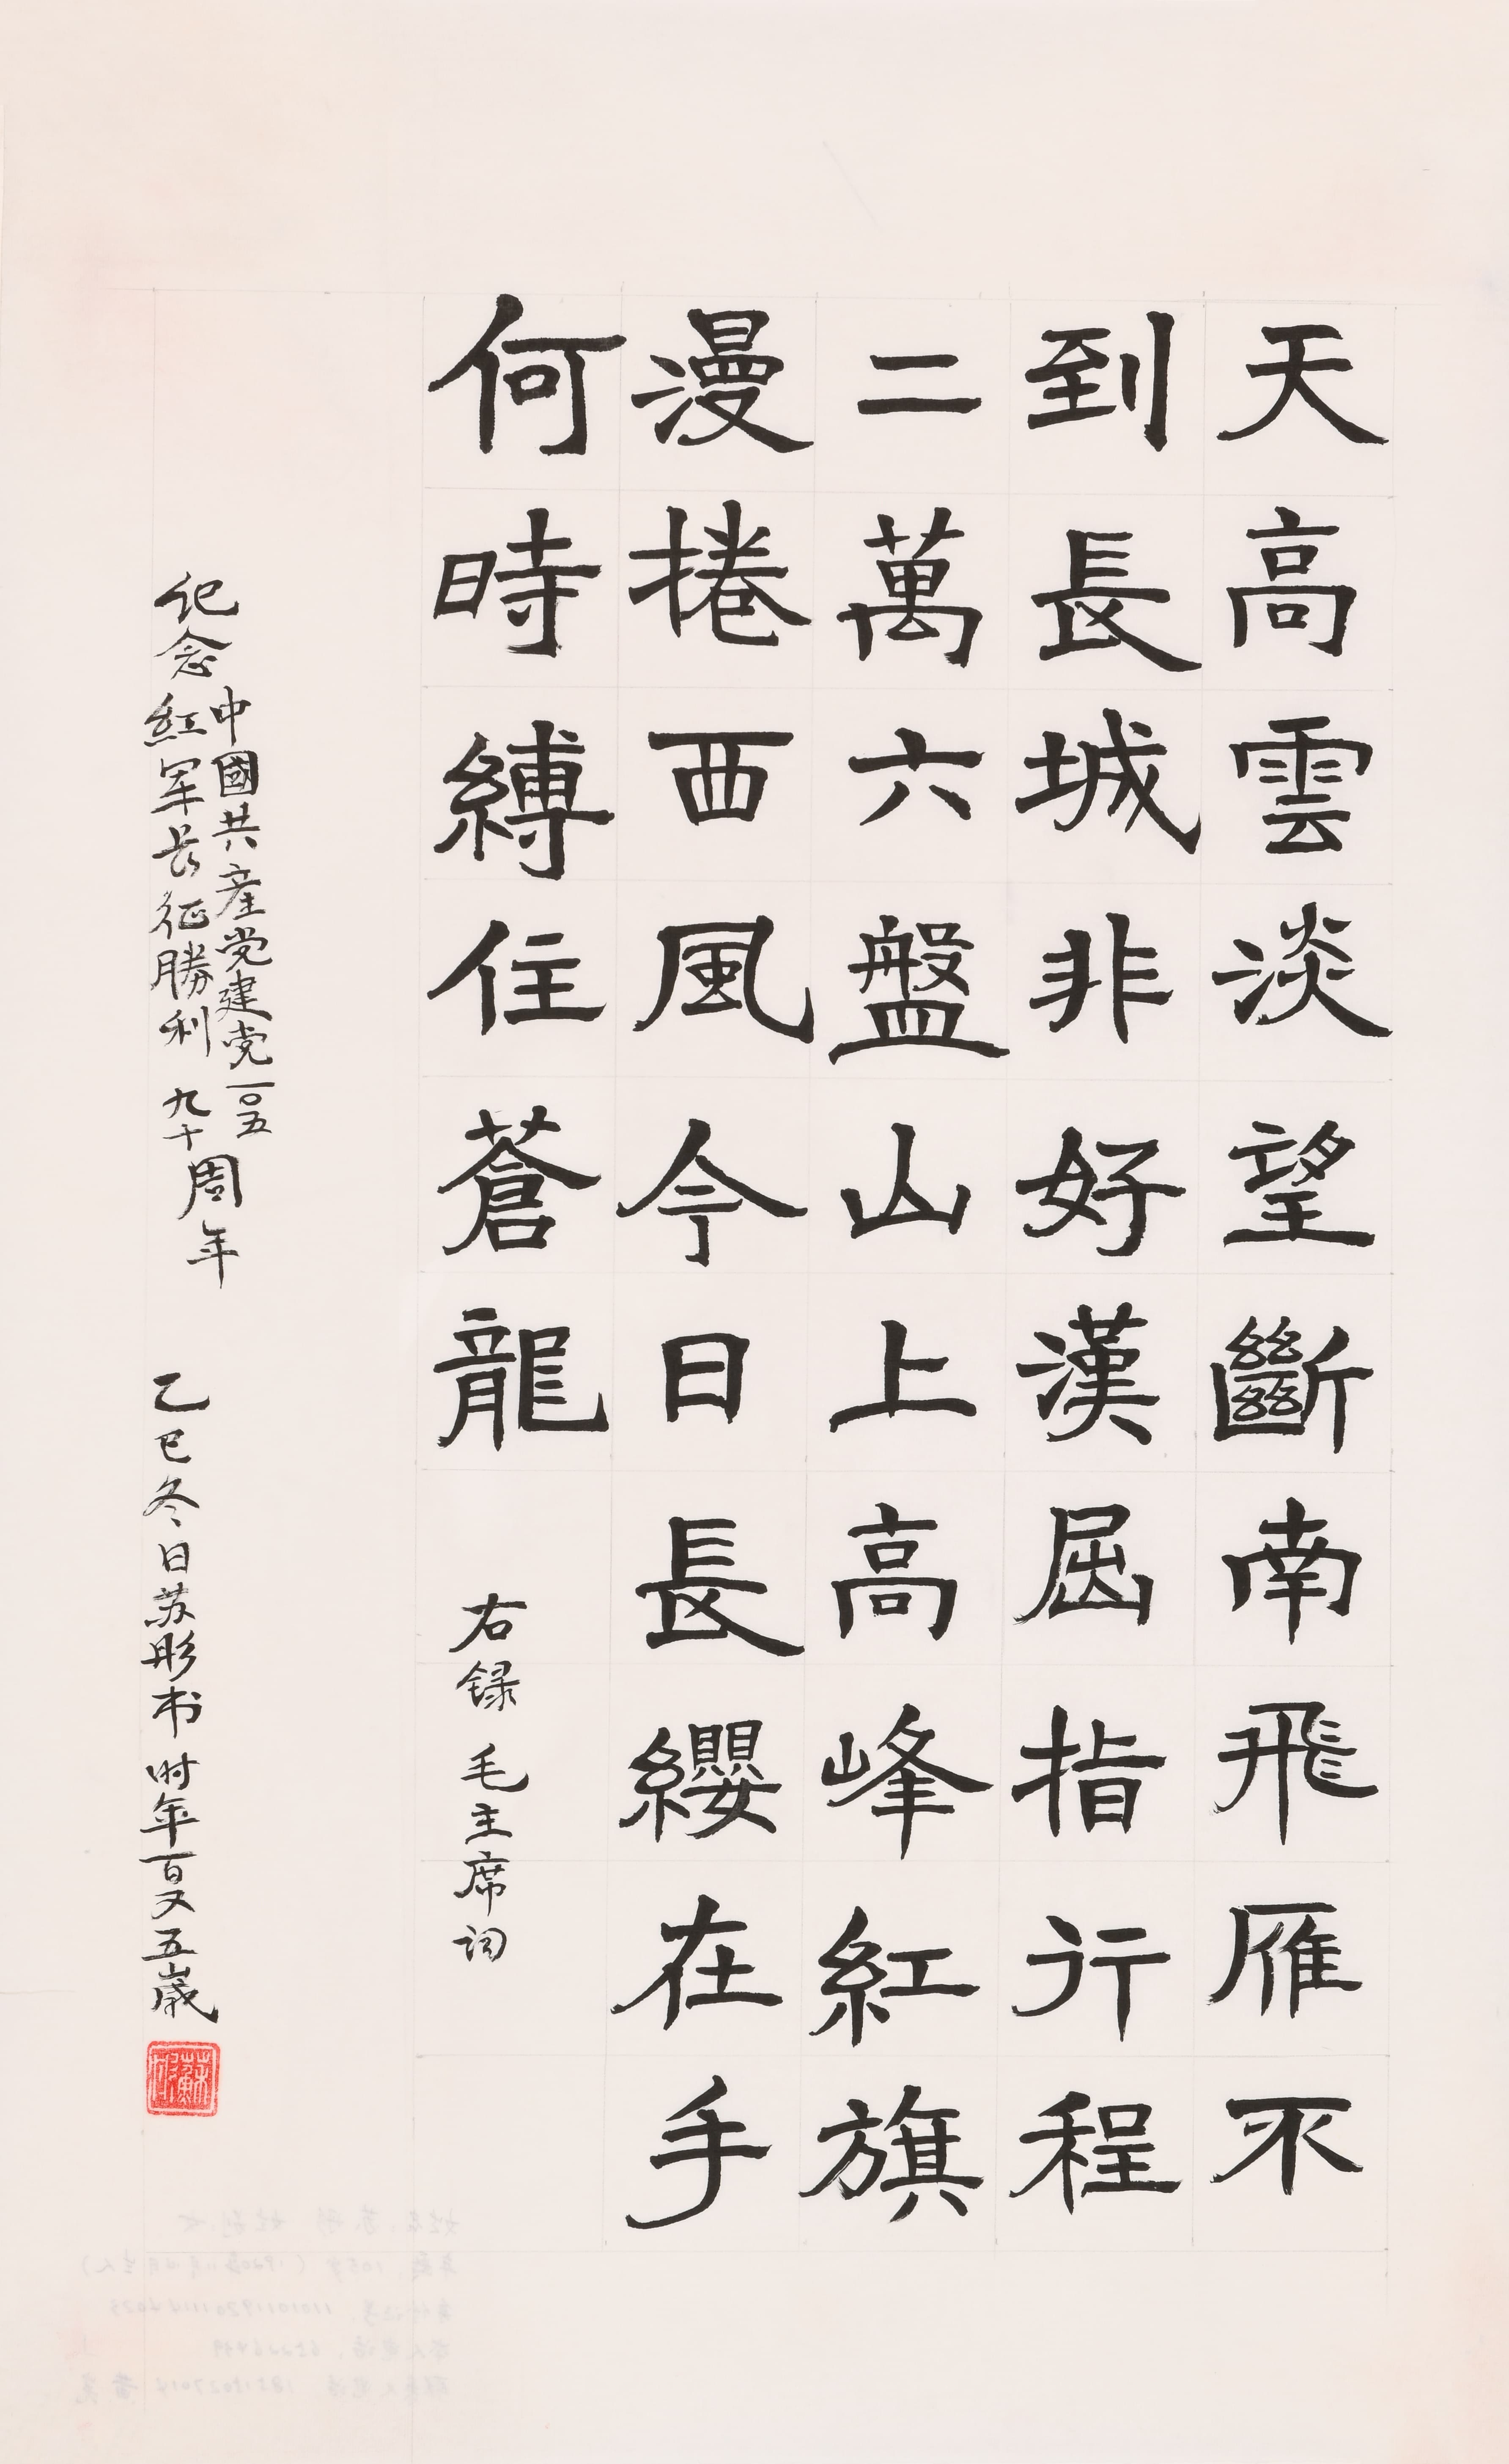 天高雲淡望斷南飛雁不
到長城非好漢屈指行程
二萬六盤山上高峰紅旗
漫捲西風今日長纓在手
何時縛住蒼龍
右録 毛主席词
纪念
中國共產党建党一〇五
红军长征勝利 九十
周年
乙巳冬日苏彤书 时年百又五歲